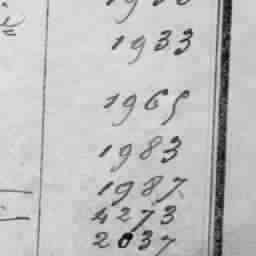 1933
1965
1983
1987
4273
2037